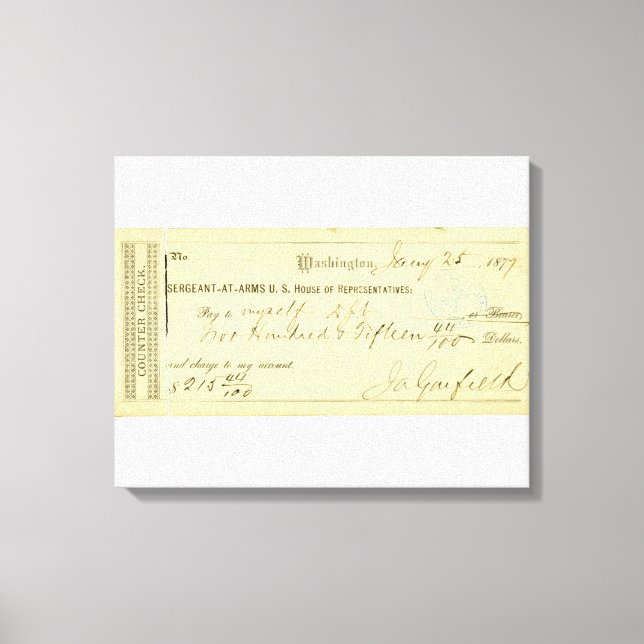 COUNTER CHECK.
No
Washington, Jany 25 1877.
SERGEANT-AT-ARMS U. S. HOUSE OF REPRESENTATIVES:
Pay to myself or Bearer
Two Hundred & Fifteen 44/100 Dollars,
and charge to my account.
$215 44/100
Ja Garfield